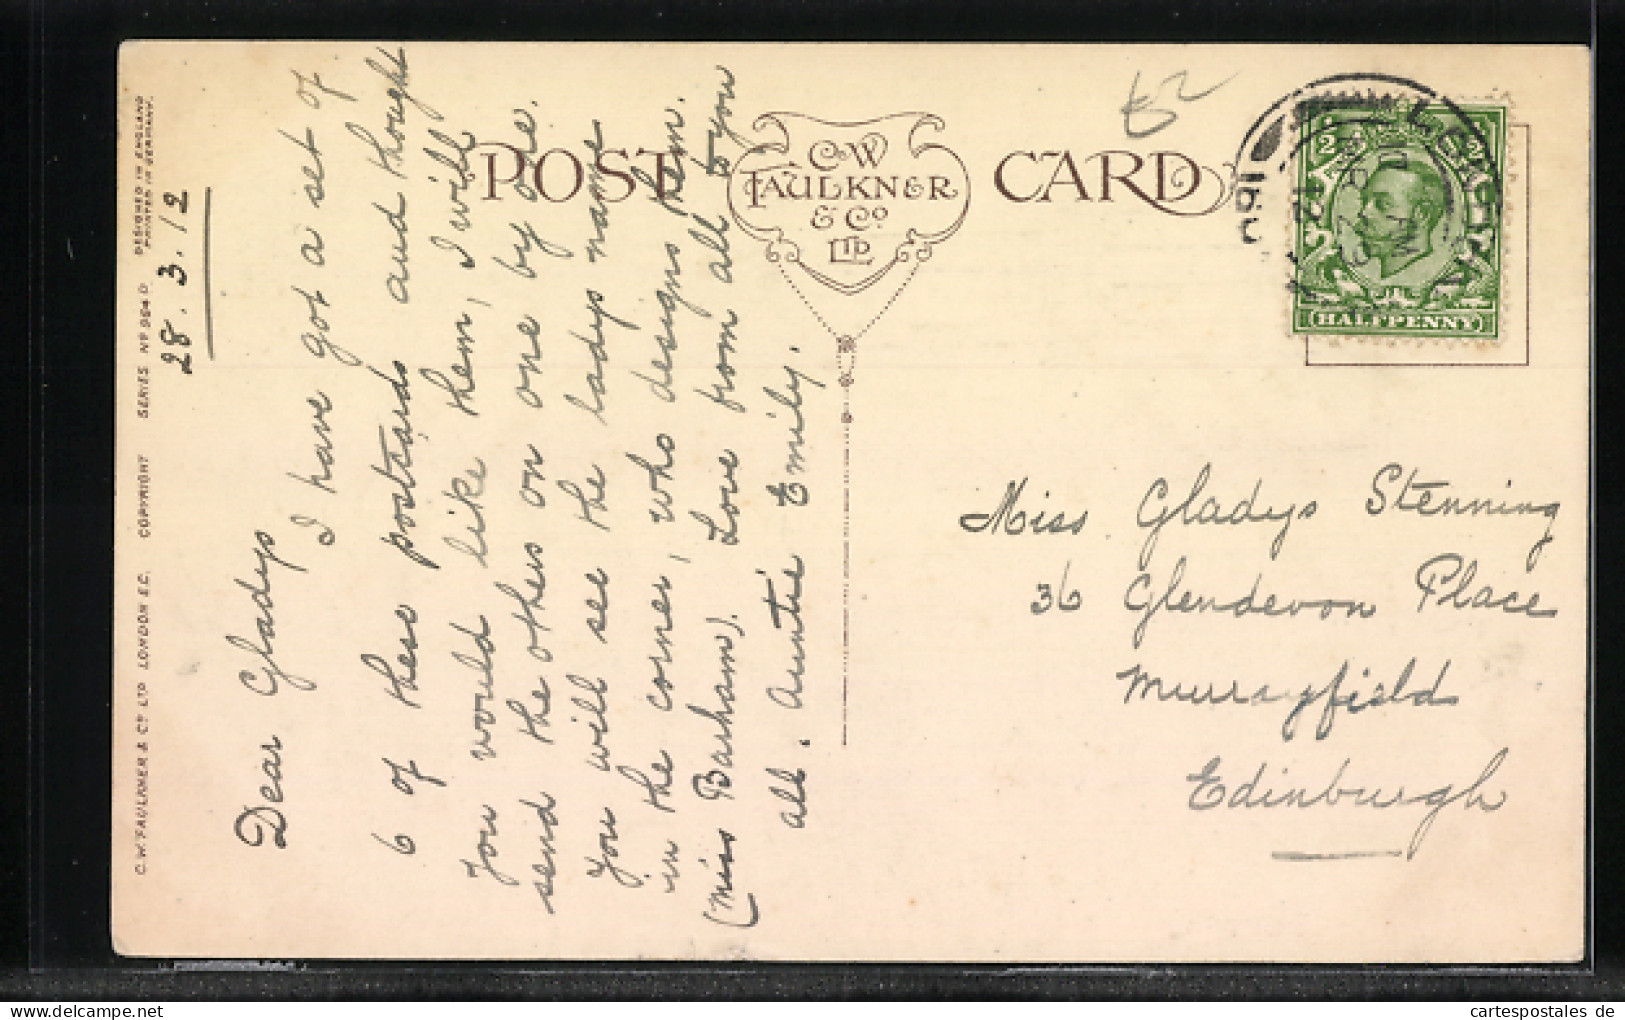 C.W. FAULKNER & CO. LTD. LONDON E.C. COPYRIGHT SERIES No 984 D
DESIGNED IN ENGLAND
PRINTED IN GERMANY.
28.3.12
Dear Gladys
I have got a set of
6 of these postcards and thought
you would like them, I will
send the others on one by one.
You will see the ladys name
in the corner, who designs them.
(Miss Barham). Love from all to you
all. Auntie Emily.
POST CARD
C W
FAULKNER
& Co
LTD
£2
HALFPENNY
Miss Gladys Stenning
36 Glendevon Place
Murrayfield
Edinburgh
cartespostales de